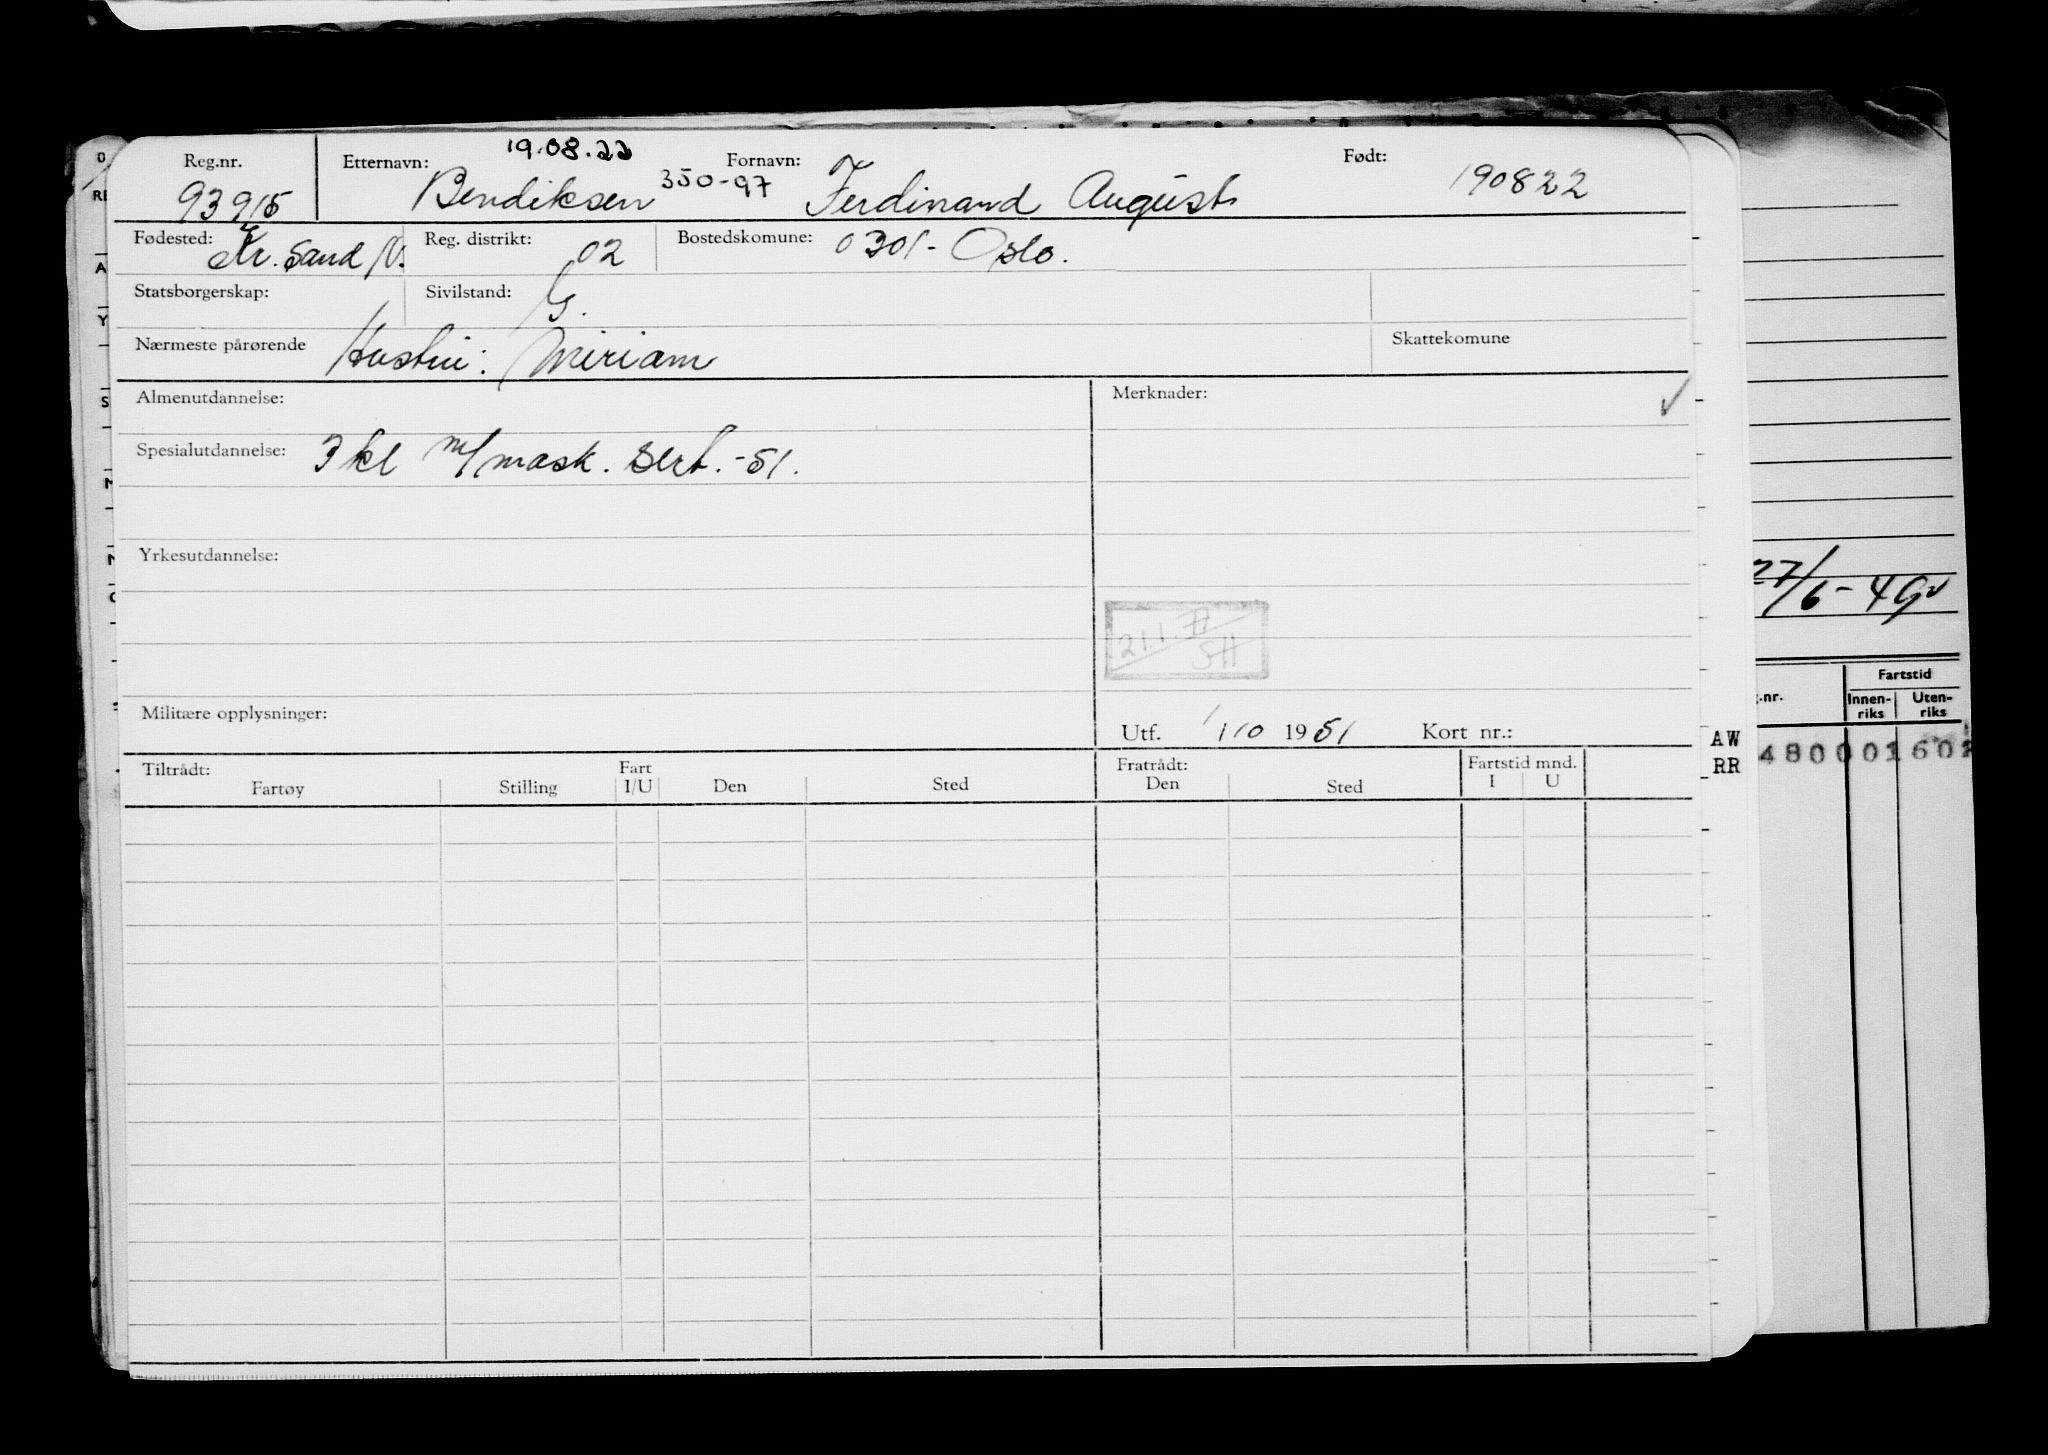 19.08.22
Reg.nr. Etternavn: Fornavn: Født:
93915 Bendiksen 350-97 Ferdinand August 190822
Fødested: Kr. Sand N. Reg. distrikt: 02 Bostedskomune: 0301- Oslo.
Statsborgerskap: Sivilstand: G.
Nærmeste pårørende Hustru: Miriam Skattekomune
Almenutdannelse: Merknader:
Spesialutdannelse: 3 kl m/mask. sert. -51.
Yrkesutdannelse:
27/6-49
21.1.77
SH
Militære opplysninger:
Utf. 1/10 1951 Kort nr.:
Tiltrådt: Fart Fratrådt: Fartstid mnd.
Fartøy Stilling I/U Den Sted Den Sted I U
AW
RR
Fartstid
.nr. Innen- Uten-
riks riks
480001602